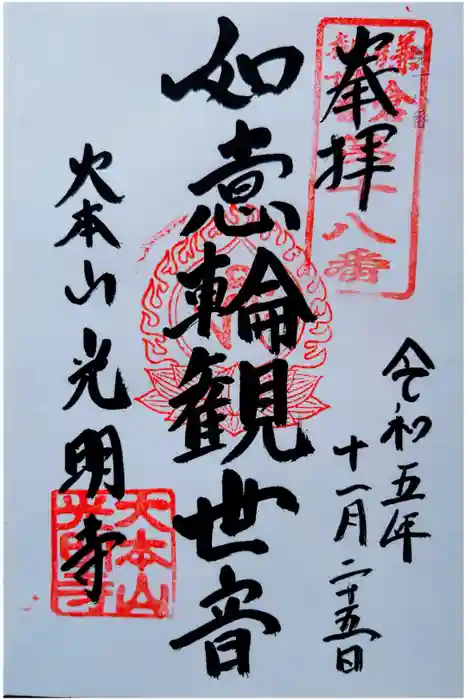 鎌倉
八番
奉拝
令和五年
十一月二十五日
如意輪観世音
大本山光明寺
大本山
光明寺